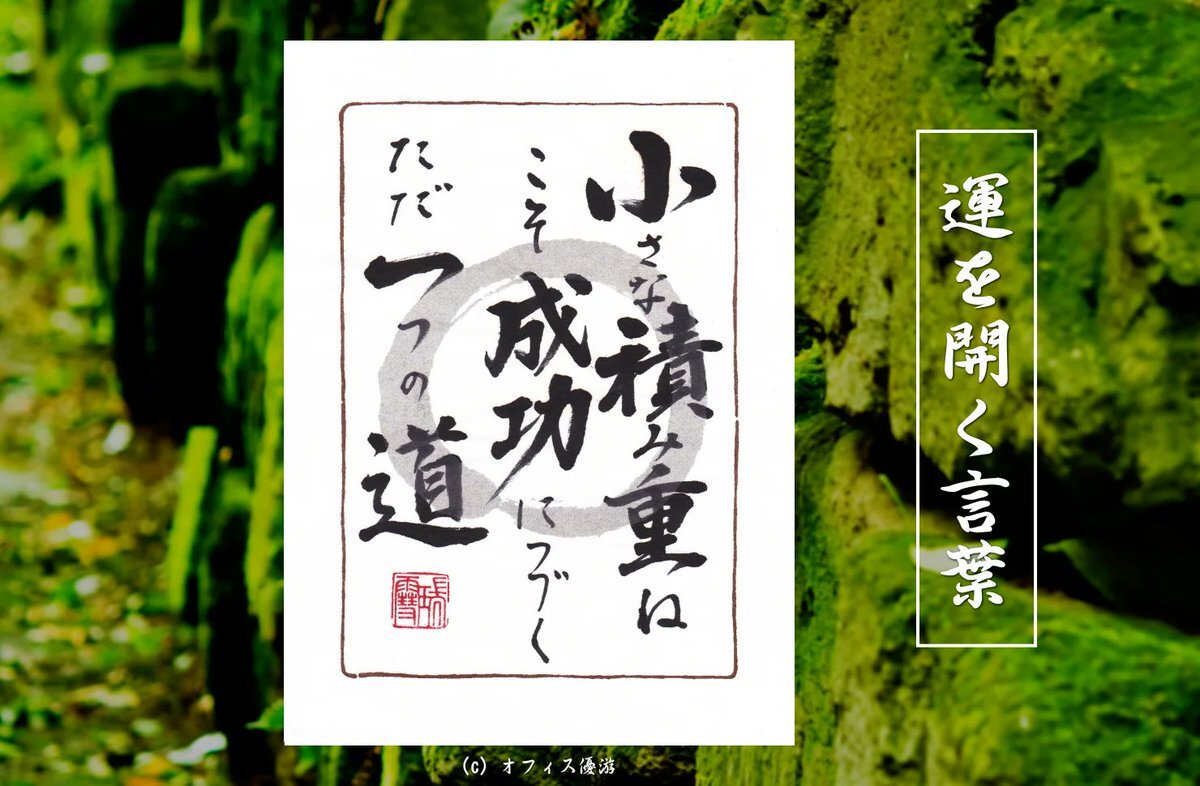 運を開く言葉
小さな積み重ね
こそ成功につづく
ただ一つの道
(C) オフィス優游